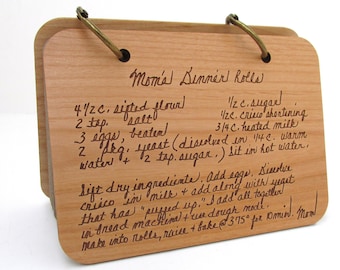 Mom's Dinner Rolls
4 1/2 c. sifted flour 1/2 c. sugar
2 tsp. salt 1/2 c. crisco shortening
3 eggs, beaten 3/4 c. heated milk
2 pkg. yeast (dissolved in 1/4 c. warm
water + 2 tsp. sugar.) Sit in hot water.
Sift dry ingredients, add eggs. Dissolve
crisco in milk + add along with yeast
that has "pupped up." I add all together
in bread machine + use dough mode.
Make into rolls, raise + bake @ 375° for 10 min. Mom